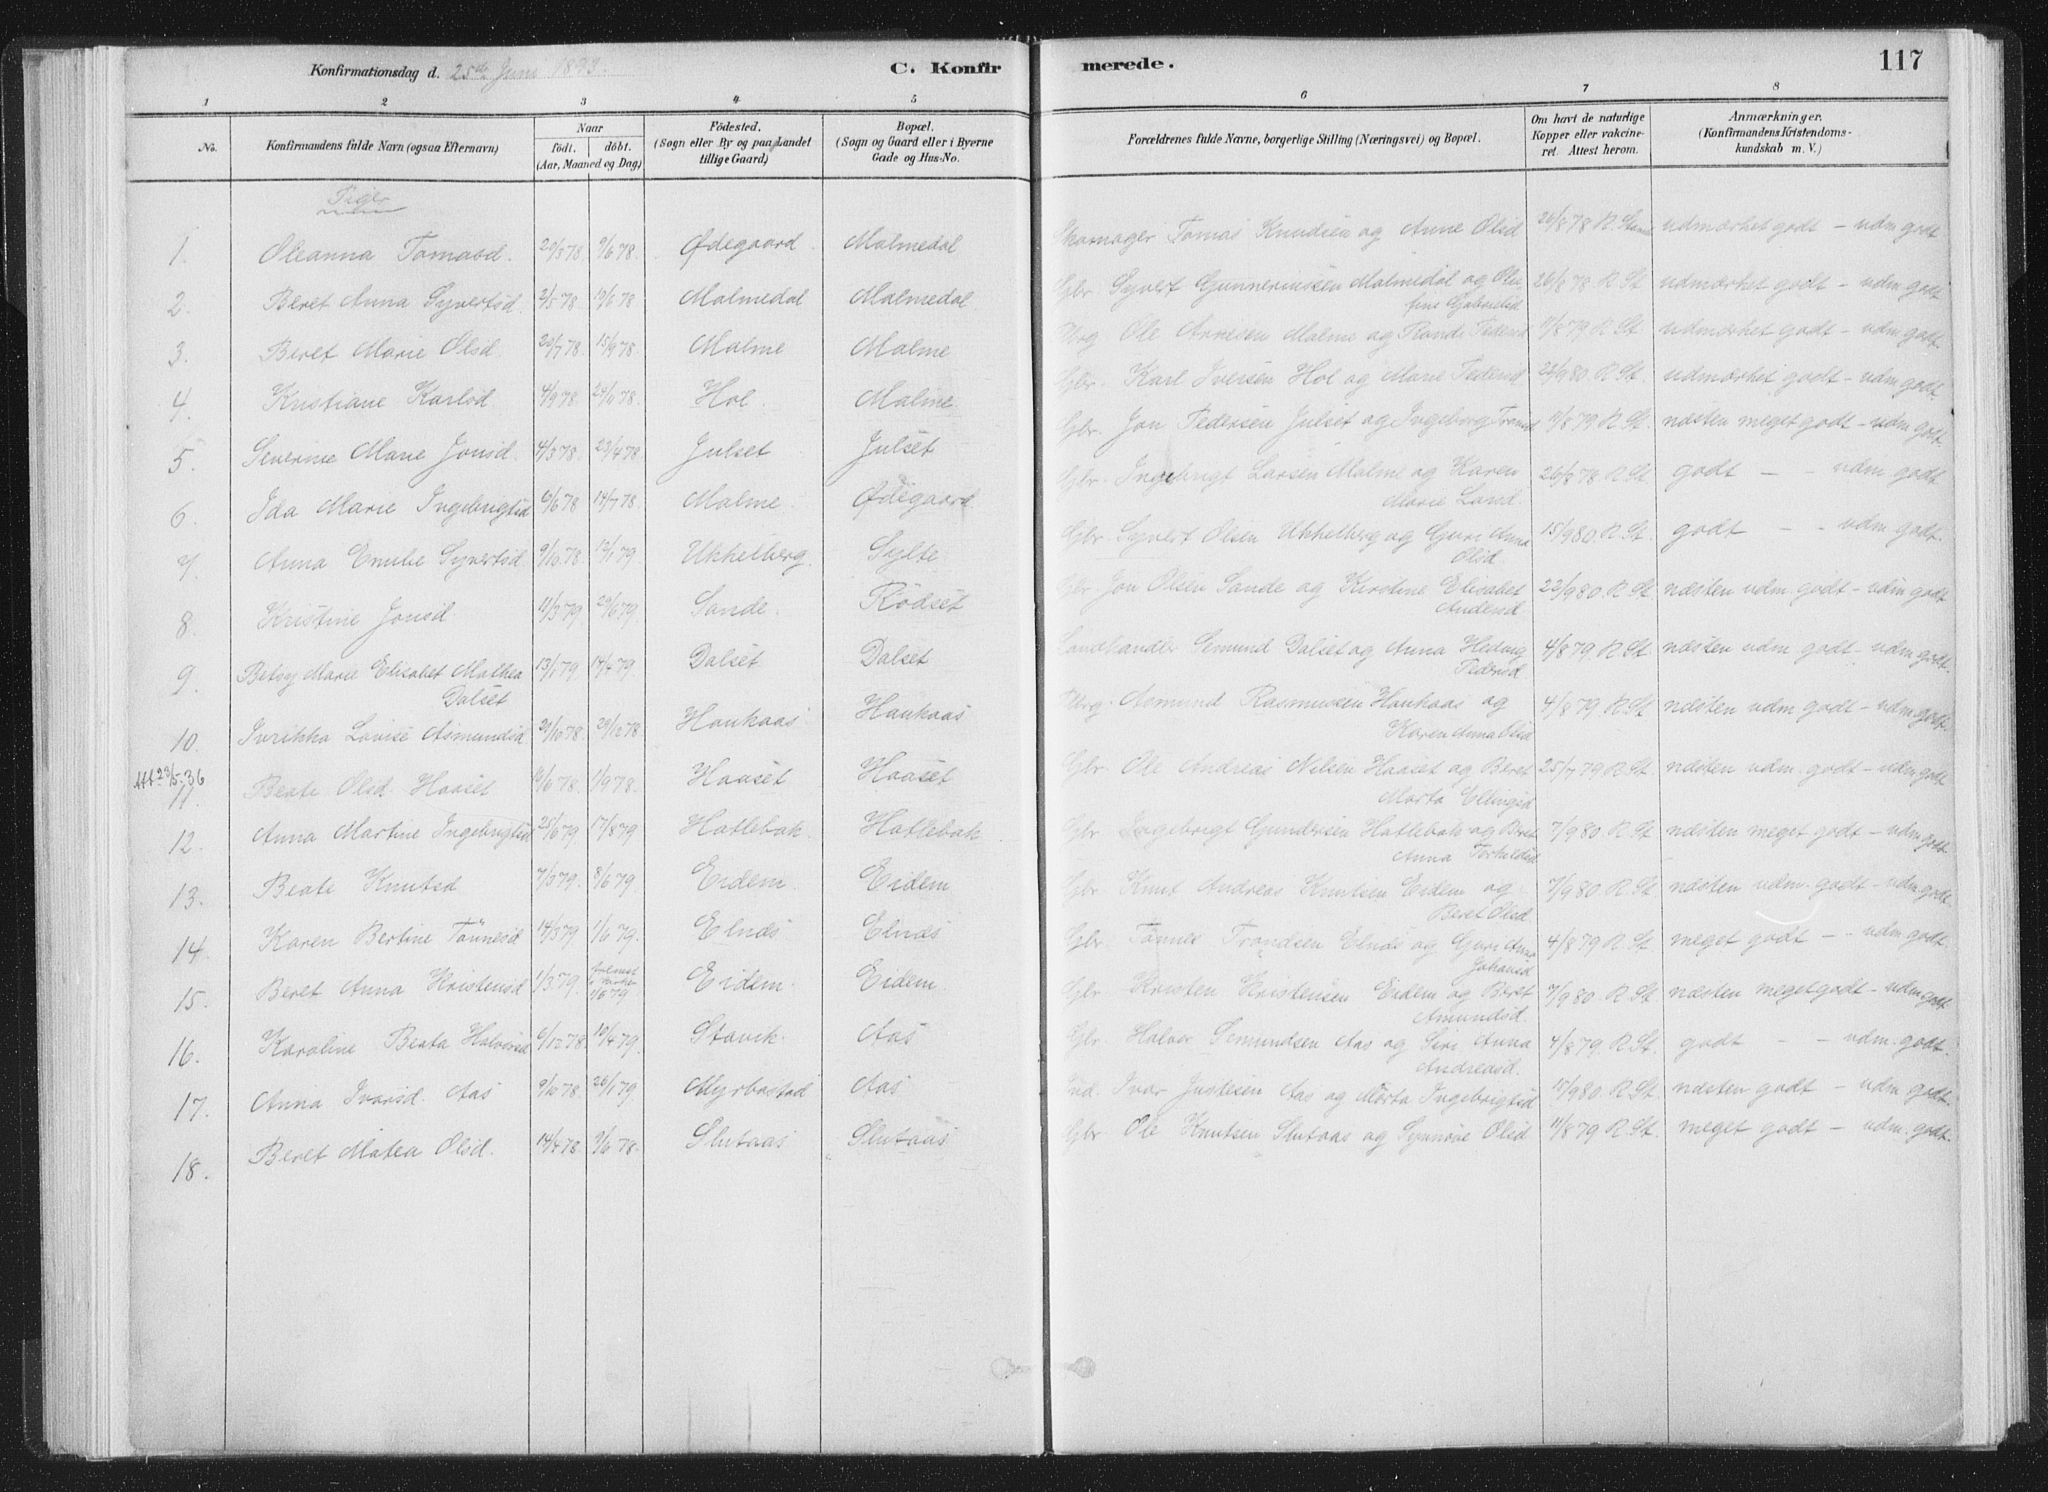 Konfirmationsdag d. 25de Juni 1893.
C. Konfir merede. 117
1 2 3 4 5 6 7 8
No. Konfirmandens fulde Navn (ogsaa Efternavn) Naar født. døbt. (Aar, Maaned og Dag) Fødested. (Sogn eller By og paa Landet tillige Gaard) Bopæl. (Sogn og Gaard eller i Byerne Gade og Hus-No. Forældrenes fulde Navne, borgerlige Stilling (Næringsvei) og Bopæl. Om havt de naturlige Kopper eller vakcineret. Attest herom. Anmærkninger. (Konfirmandens Kristendomskundskab m. V.)
Piger
1. Oleanna Tomasd. 20/5 78 9/6 78. Ødegaard. Malmedal Skomager Tomas Knudsen og Anne Olsd 26/8 78 R. udmærket godt – udm godt
2. Beret Anna Syvertsd. 2/5 78 Malmedal Malmedal Gbr. Syvert Gunneriussen Malmedal og Olufine Gabrielsd 26/8 78 R. St. udmærket godt – udm. godt
3. Beret Marie Olsd. 20/7 78 15/9 78 Malme Malme Ole Arnesen Malme og Pedersd 11/8 79 R. St. udmærket godt – udm. godt.
4. Kristiane Karlsd. 4/9 78 78 Hol. Malme. Gbr. Karl Iversen Hol og Marie Pedersd 22/9 80 R. St. udmærket godt – udm. godt
5. Severine Marie Jonsd. 4/3 78 23/4 78 Julset Julset Gbr. Jon Pedersen Julset og Ingeborg 11/8 79 R. St. næsten meget godt – udm. godt.
6. Ida Marie Ingebrigtsd 6/6 78 14/7 78 Malme Ødegaard. Gbr. Ingebrigt Larsen Malme og Karen Marie Land. 26/8 78 R. St godt – – udm. godt
7. Anna Emilie Syvertsd. 9/10 78 12/1 79 Ukkelberg. Sylte Gbr. Syvert Olsen Ukkelberg og Guri Anna Olsd. 15/9 80 R. St. godt – – udm. godt.
8. Kristine Jonsd 11/3 79. 29/6 79. Sande. Rødset Gbr Jon Olsen Sande og Kirstine Elisabet Andersd. 22/9 80 R. St. næsten udm. godt – udm. godt
9. Betsy Marie Elisabet Mathea Dalset 13/1 79. 14/4 79. Dalset Dalset Landhandler Semund Dalset og Anna Hedvig Pedersd. 4/8 79. R. St. næsten udm. godt – udm. godt.
10. Lovise Asmundsd 29/12 78. Haukaas Haukaas Asmund Rasmussen Haukaas og Karen Anna Olsd 4/8 79 R. St næsten udm. godt – udm. godt.
Att. 23/5-36
11. Beate Olsd. Haaset 78. 1/9 78. Haaset Haaset Gbr. Ole Andreas Nilsen Haaset og Beret Marta Ellingsd 25/7 79 R. St. næsten udm. godt – udm. godt
12. Anna Martine Ingebrigtsd 25/6 79. 17/8 79. Hatlebak. Hatlebak. Gbr. Ingebrigt Gundersen Hatlebak og Beret Anna Torkildsd. 7/9 80. R. St næsten meget godt – udm. godt.
13. Beate Knutsd 7/3 79. 8/6 79. Eidem. Eidem Gbr Knut Andreas Knutsen Eidem og Beret Olsd. 7/9 80 R. St næsten udm. godt – udm. godt.
14. Karen Bertine Tønnesd 14/3 79. 1/6 79. Elnæs Elnæs Gbr. Tønnes Trondsen Elnæs og Guri Anna Johansd 4/8 79 R. St meget godt – – udm. godt
15. Beret Anna Kristensd 1/3 79. 1/6 79 Eidem. Eidem. Gbr. Kristen Kristensen Eidem og Beret Amundsd. 7/9 80. R. St næsten meget godt – udm. godt.
16. Karoline Beata Halvorsd 6/12 78. 10/4 79. Stavik Aas Gbr. Halvor Semundsen Aas og Siri Anna Andreasd. 4/8 79. R. St. godt – – udm. godt.
17. Anna Ivarsd. Aas 9/12 78. 26/1 79. Myrbostad Aas Ind. Ivar Justesen Aas og Marta Ingebrigtsd 17/9 80. R. St. næsten godt – udm. godt.
18. Beret Matea Olsd. 14/4 78. 9/6 78. Slutaas Slutaas Gbr. Ole Knutsen Slutaas og Synnøve Olsd 11/8 79 R. St. meget godt – udm. godt.